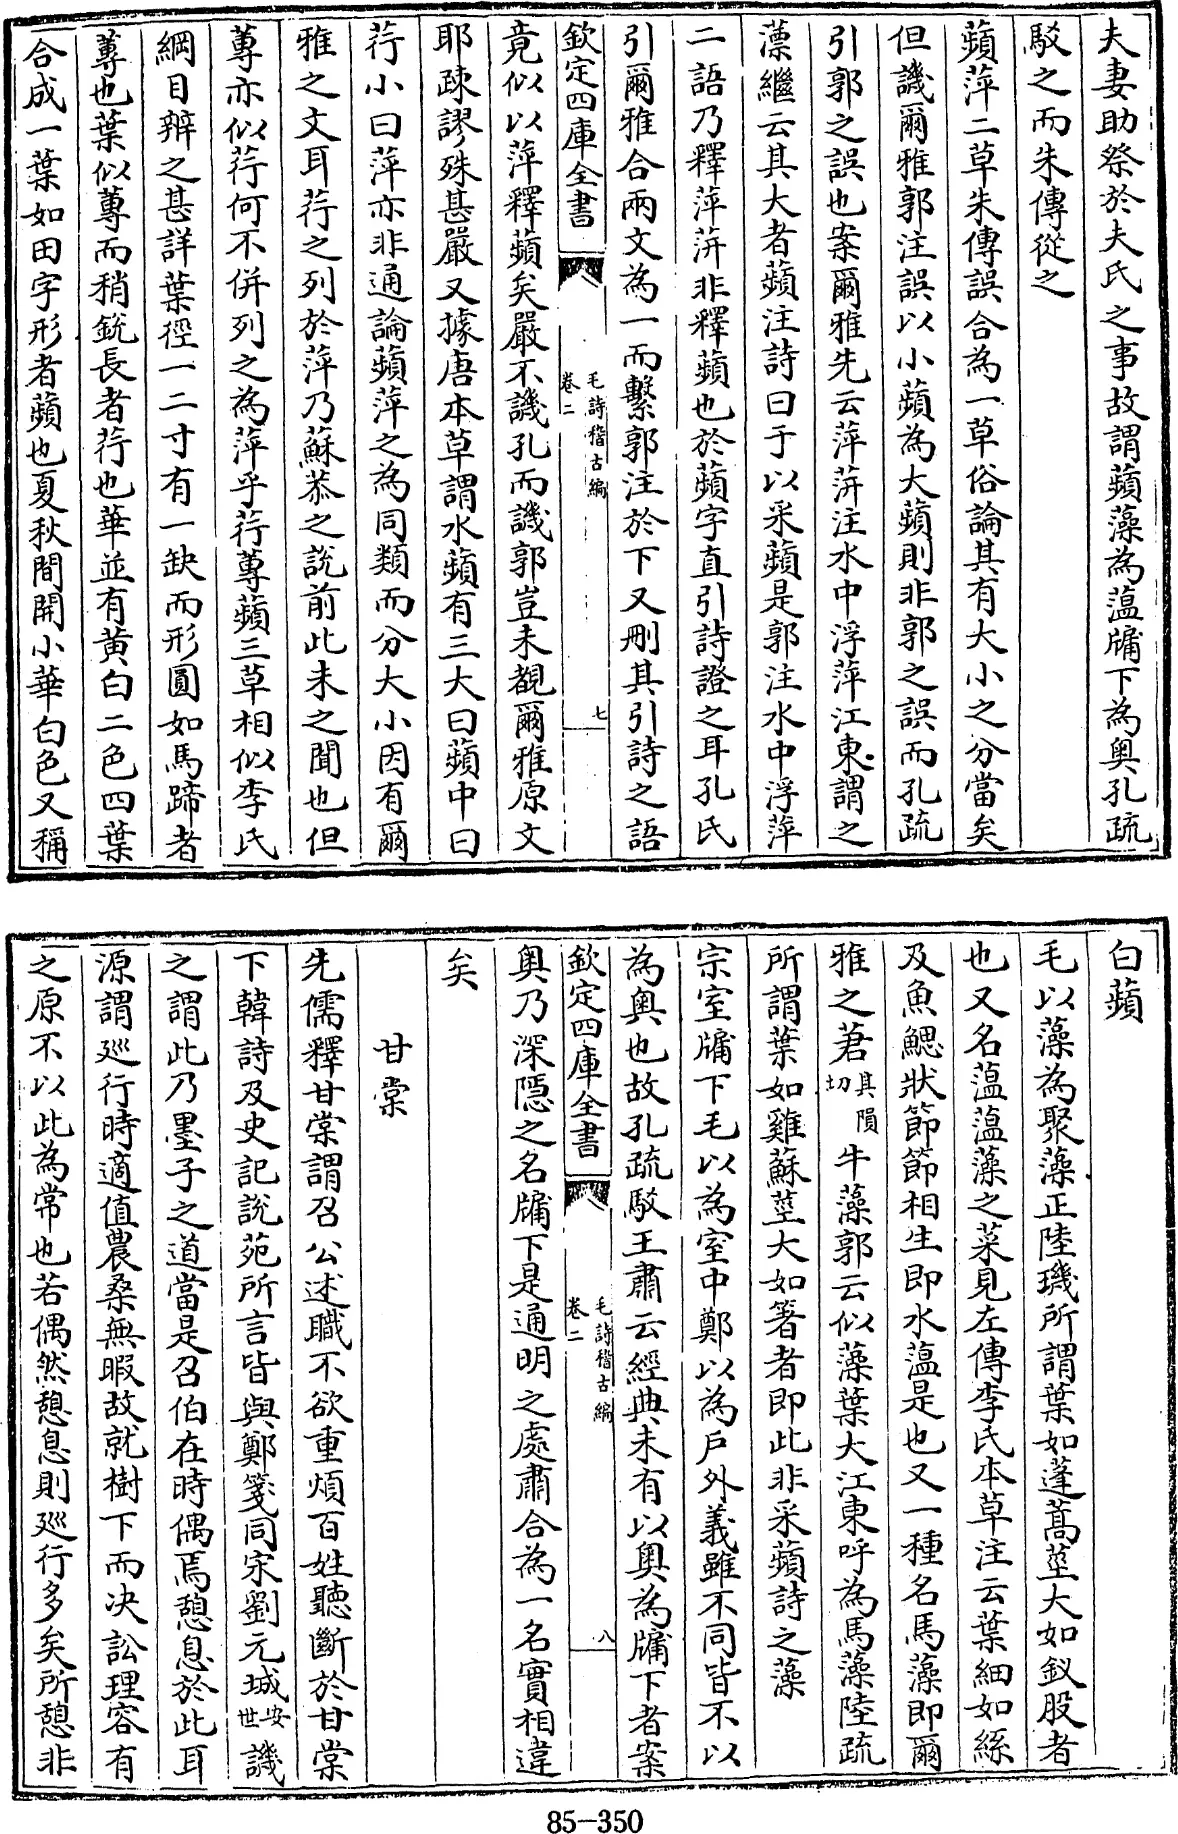 夫妻助祭於夫氏之事故謂蘋藻為薀牖下為奥孔疏
駁之而朱傳從之
蘋萍二草朱傳誤合為一草俗論其有大小之分當矣
但譏爾雅郭注誤以小蘋為大蘋則非郭之誤而孔疏
引郭之誤也案爾雅先云萍蓱注水中浮萍江東謂之
薸繼云其大者蘋注詩曰于以采蘋是郭注水中浮萍
二語乃釋萍蓱非釋蘋也於蘋字直引詩證之耳孔氏
引爾雅合兩文為一而繫郭注於下又刪其引詩之語
欽定四庫全書
毛詩稽古編
卷二
七
竟似以萍釋蘋矣嚴不譏孔而譏郭豈未覩爾雅原文
耶疎謬殊甚嚴又據唐本草謂水蘋有三大曰蘋中曰
荇小曰萍亦非通論蘋萍之為同類而分大小因有爾
雅之文耳荇之列於萍乃蘇恭之說前此未之聞也但
蓴亦似荇何不併列之為萍乎荇蓴蘋三草相似李氏
綱目辨之甚詳葉徑一二寸有一缺而形圓如馬蹄者
蓴也葉似蓴而稍銳長者荇也華並有黃白二色四葉
合成一葉如田字形者蘋也夏秋間開小華白色又稱
白蘋
毛以藻為聚藻正陸璣所謂葉如蓬蒿莖大如釵股者
也又名薀薀藻之菜見左傳李氏本草注云葉細如絲
及魚鰓狀節節相生即水薀是也又一種名馬藻即爾
雅之莙其隕切牛藻郭云似藻葉大江東呼為馬藻陸疏
所謂葉如雞蘇莖大如箸者即此非采蘋詩之藻
宗室牖下毛以為室中鄭以為戶外義雖不同皆不以
為奥也故孔疏駁王肅云經典未有以奥為牖下者案
欽定四庫全書
毛詩稽古編
卷二
八
奥乃深隱之名牖下是通明之處肅合為一名實相違
矣
甘棠
先儒釋甘棠謂召公述職不欲重煩百姓聽斷於甘棠
下韓詩及史記說苑所言皆與鄭箋同宋劉元城安世譏
之謂此乃墨子之道當是召伯在時偶焉憩息於此耳
源謂巡行時適值農桑無暇故就樹下而决訟理容有
之原不以此為常也若偶然憩息則巡行多矣所憩非
85-350